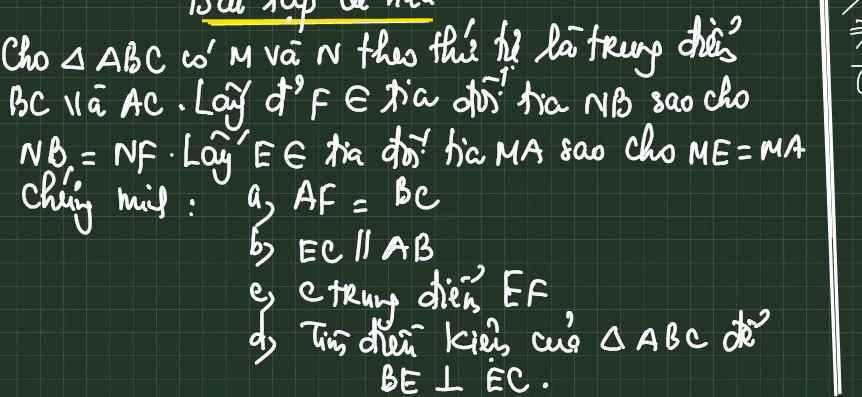 Bài tập về nhà
Cho △ ABC có M và N theo thứ tự là trung điểm
BC và AC. Lấy đ' F ∈ tia đối tia NB sao cho
NB = NF. Lấy E ∈ tia đối tia MA sao cho ME = MA
Chứng minh: a, AF = BC
b, EC // AB
c, C trung điểm EF
d, Tìm điều kiện của △ ABC để
BE ⊥ EC.